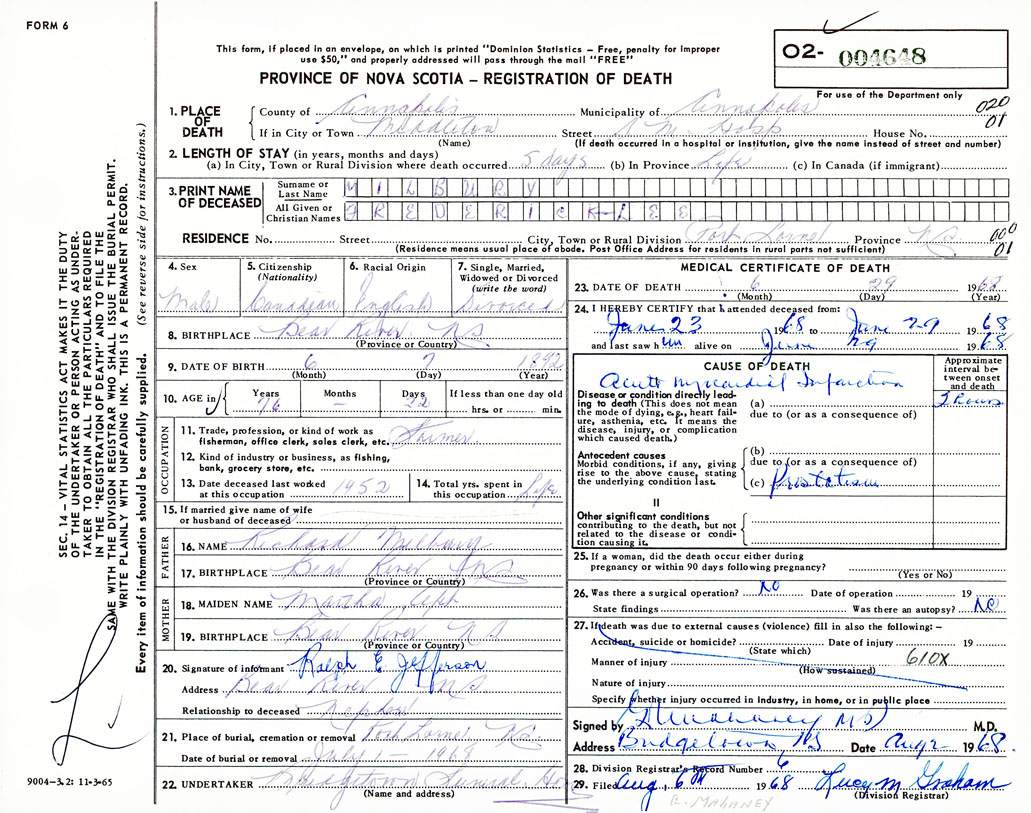 FORM 6
This form, if placed in an envelope, on which is printed "Dominion Statistics – Free, penalty for improper
use $50," and properly addressed will pass through the mail "FREE"
PROVINCE OF NOVA SCOTIA – REGISTRATION OF DEATH
O2- 004648
For use of the Department only
1. PLACE OF DEATH
County of Annapolis Municipality of Annapolis 020
If in City or Town Middleton Street S M Hosp House No. 01
(Name) (If death occurred in a hospital or institution, give the name instead of street and number)
2. LENGTH OF STAY (in years, months and days)
(a) In City, Town or Rural Division where death occurred 5 days (b) In Province Life (c) In Canada (if immigrant)
3. PRINT NAME OF DECEASED
Surname or Last Name MILBURY
All Given or Christian Names FREDERICK LEE
RESIDENCE No. Street City, Town or Rural Division Port Lorne Province N.S. 000
(Residence means usual place of abode. Post Office Address for residents in rural parts not sufficient) 01
4. Sex Male
5. Citizenship (Nationality) Canadian
6. Racial Origin English
7. Single, Married, Widowed or Divorced (write the word) Divorced
8. BIRTHPLACE Bear River N.S.
(Province or Country)
9. DATE OF BIRTH 6 7 1892
(Month) (Day) (Year)
10. AGE in Years 76 Months – Days 22 If less than one day old hrs. or min.
OCCUPATION
11. Trade, profession, or kind of work as fisherman, office clerk, sales clerk, etc. Farmer
12. Kind of industry or business, as fishing, bank, grocery store, etc.
13. Date deceased last worked at this occupation 1952
14. Total yrs. spent in this occupation Life
15. If married give name of wife or husband of deceased
FATHER
16. NAME Richard Milbury
17. BIRTHPLACE Bear River N.S.
(Province or Country)
MOTHER
18. MAIDEN NAME Martha
19. BIRTHPLACE Bear River N S
(Province or Country)
20. Signature of informant Ralph E Jefferson
Address Bear River N S
Relationship to deceased Nephew
21. Place of burial, cremation or removal Port Lorne N.S.
Date of burial or removal July 1 – 1968
22. UNDERTAKER Bridgetown Funeral Home
(Name and address)
MEDICAL CERTIFICATE OF DEATH
23. DATE OF DEATH 6 29 1968
(Month) (Day) (Year)
24. I HEREBY CERTIFY that I attended deceased from:
June 23 1968 to June 29 1968
and last saw him alive on June 29 1968
CAUSE OF DEATH
Approximate interval between onset and death
Acute Myocardial Infarction
Disease or condition directly leading to death (This does not mean the mode of dying, e.g., heart failure, asthenia, etc. It means the disease, injury, or complication which caused death.)
(a)
due to (or as a consequence of)
Antecedent causes
Morbid conditions, if any, giving rise to the above cause, stating the underlying condition last.
(b)
due to (or as a consequence of)
(c) Prostatism
II
Other significant conditions contributing to the death, but not related to the disease or condition causing it.
25. If a woman, did the death occur either during pregnancy or within 90 days following pregnancy?
(Yes or No)
26. Was there a surgical operation? No Date of operation 19
State findings Was there an autopsy? No
27. If death was due to external causes (violence) fill in also the following: –
Accident, suicide or homicide? Date of injury 19
(State which)
Manner of injury 610X
(How sustained)
Nature of injury
Specify whether injury occurred in industry, in home, or in public place
Signed by Mahaney MD M.D.
Address Bridgetown NS Date Aug 2 1968.
28. Division Registrar's Record Number 6
29. Filed Aug, 6th 1968 Lucy M Graham
(Division Registrar)
E. MAHANEY
SEC. 14 – VITAL STATISTICS ACT MAKES IT THE DUTY
OF THE UNDERTAKER OR PERSON ACTING AS UNDER-
TAKER TO OBTAIN ALL THE PARTICULARS REQUIRED
IN THE "REGISTRATION OF DEATH" AND TO FILE THE
SAME WITH THE DIVISION REGISTRAR WHO SHALL ISSUE THE BURIAL PERMIT.
WRITE PLAINLY WITH UNFADING INK. THIS IS A PERMANENT RECORD.
Every item of information should be carefully supplied. (See reverse side for instructions.)
9004-3.2: 11-3-65